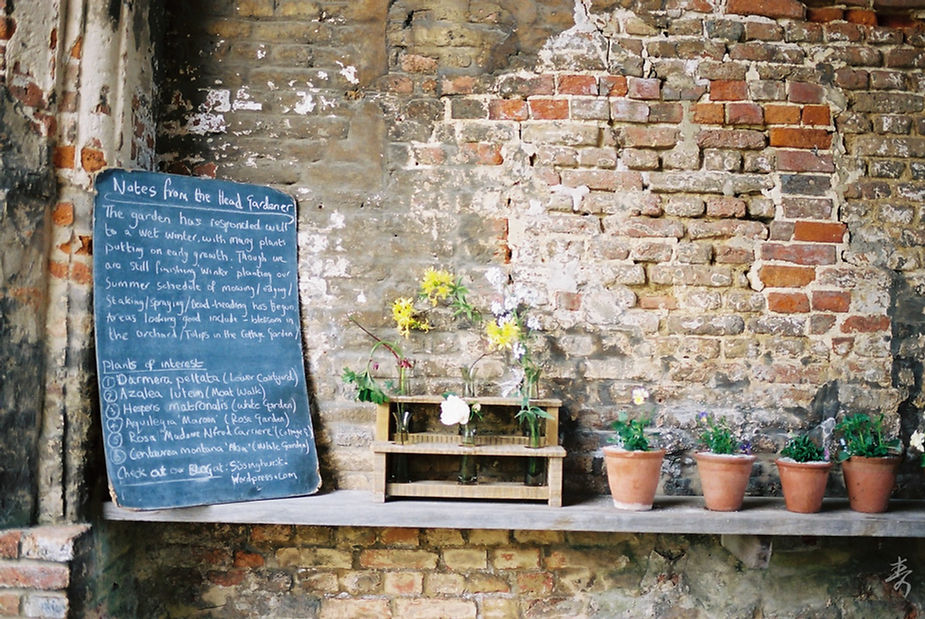 Notes from the Head Gardener
The garden has responded well
to a wet winter, with many plants
putting on early growth. Though we
are still finishing winter planting our
summer schedule of mowing/edging/
Staking/spraying/Dead-heading has begun.
Areas looking good include - blossom in
the orchard/Tulips in the Cottage Garden/
Plants of interest
① Darmera peltata (Lower Courtyard)
② Azalea luteum (Moat Walk)
③ Hesperis matronalis (White Garden)
④ Aquilegia Maroon (Rose Garden)
⑤ Rosa 'Madame Alfred Carriere' (Cottage G)
⑥ Centaurea montana 'Alba' (White Garden)
Check out our BLOG at: Sissinghurst.
Wordpress.com
寿